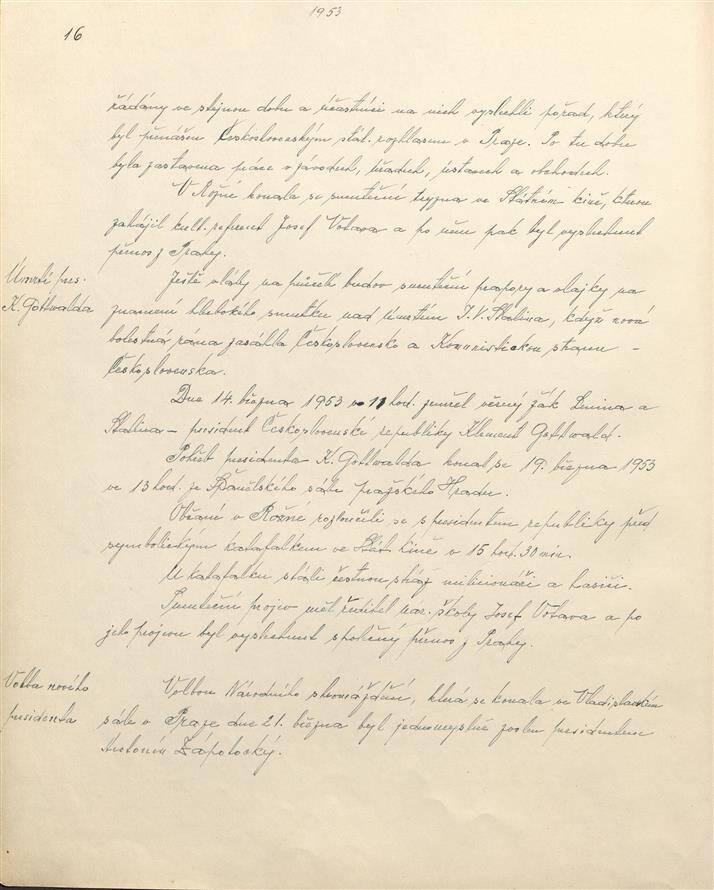 1953
16
řádány ve stejnou dobu a účastníci na nich vyslechli pořad, který
byl přenášen Československým stát. rozhlasem v Praze. Po tu dobu
byla zastavena práce v závodech, úřadech, ústavech a obchodech.
V Rožné konala se smuteční tryzna ve Státním kině, kterou
zahájil kult. referent Josef Votava a po něm pak byl vyslechnut
přenos z Prahy.
Úmrtí pres.
K. Gottwalda
Ještě vlály na průčelí budov smuteční prapory a vlajky na
znamení hlubokého smutku nad úmrtím J. V. Stalina, když nová
bolestná rána zasáhla Československo a Komunistickou stranu -
Československa.
Dne 14. března 1953 v 11 hod. zemřel věrný žák Lenina a
Stalina - president Československé republiky Klement Gottwald.
Pohřeb presidenta K. Gottwalda konal se 19. března 1953
ve 13 hod. ze Španělského sálu pražského Hradu.
Občané v Rožné rozloučili se s presidentem republiky před
symbolickým katafalkem ve Stát. kině v 15 hod. 30 min.
U katafalku stáli čestnou stráž milicionáři a hasiči.
Smuteční projev měl ředitel nar. školy Josef Votava a po
jeho projevu byl vyslechnut společný přenos z Prahy.
Volba nového
presidenta
Volbou Národního shromáždění, která se konala ve Vladislavském
sále v Praze dne 21. března byl jednomyslně zvolen presidentem
Antonín Zápotocký.